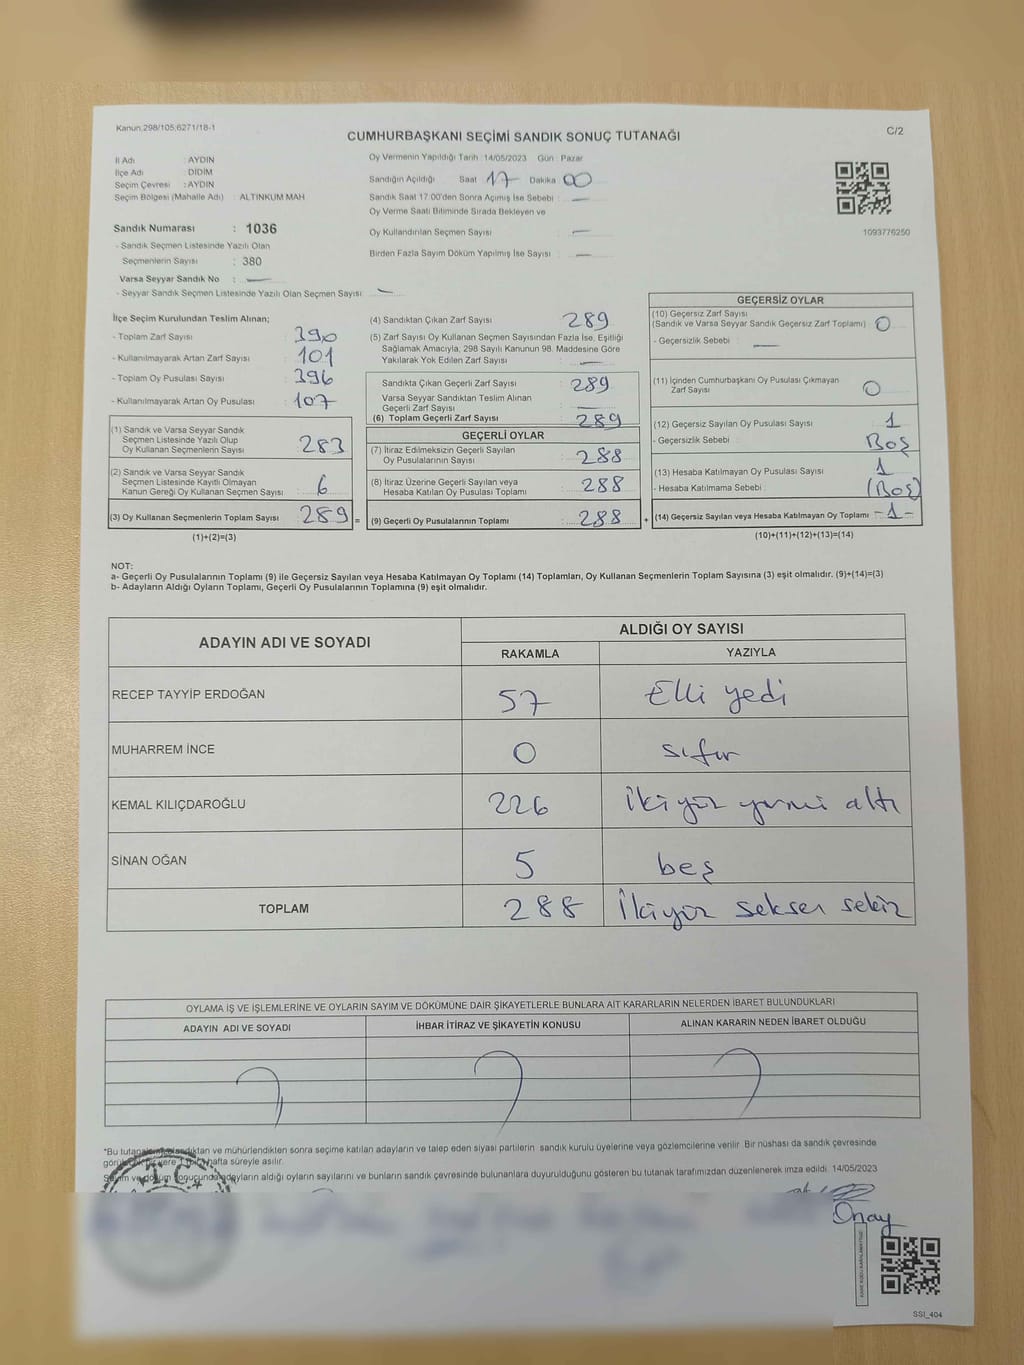 Kanun.298/105,6271/18-1
C/2
CUMHURBAŞKANI SEÇİMİ SANDIK SONUÇ TUTANAĞI
İl Adı : AYDIN
İlçe Adı : DİDİM
Seçim Çevresi : AYDIN
Seçim Bölgesi (Mahalle Adı) : ALTINKUM MAH
Oy Vermenin Yapıldığı Tarih : 14/05/2023 Gün : Pazar
Sandığın Açıldığı Saat 17 Dakika 00
Sandık Saat 17:00'den Sonra Açımış İse Sebebi : —
Oy Verme Saati Bitiminde Sırada Bekleyen ve
Oy Kullandırılan Seçmen Sayısı : —
Birden Fazla Sayım Döküm Yapılmış İse Sayısı : —
1093776250
Sandık Numarası : 1036
- Sandık Seçmen Listesinde Yazılı Olan
Seçmenlerin Sayısı : 380
Varsa Seyyar Sandık No : —
- Seyyar Sandık Seçmen Listesinde Yazılı Olan Seçmen Sayısı : —
İlçe Seçim Kurulundan Teslim Alınan;
- Toplam Zarf Sayısı : 390
- Kullanılmayarak Artan Zarf Sayısı : 101
- Toplam Oy Pusulası Sayısı : 396
- Kullanılmayarak Artan Oy Pusulası : 107
(1) Sandık ve Varsa Seyyar Sandık
Seçmen Listesinde Yazılı Olup
Oy Kullanan Seçmenlerin Sayısı : 283
(2) Sandık ve Varsa Seyyar Sandık
Seçmen Listesinde Kayıtlı Olmayan
Kanun Gereği Oy Kullanan Seçmen Sayısı : 6
(3) Oy Kullanan Seçmenlerin Toplam Sayısı : 289
(1)+(2)=(3)
(4) Sandıktan Çıkan Zarf Sayısı : 289
(5) Zarf Sayısı Oy Kullanan Seçmen Sayısından Fazla İse, Eşitliği
Sağlamak Amacıyla, 298 Sayılı Kanunun 98. Maddesine Göre
Yakılarak Yok Edilen Zarf Sayısı : —
Sandıkta Çıkan Geçerli Zarf Sayısı : 289
Varsa Seyyar Sandıktan Teslim Alınan
Geçerli Zarf Sayısı : —
(6) Toplam Geçerli Zarf Sayısı : 289
GEÇERLİ OYLAR
(7) İtiraz Edilmeksizin Geçerli Sayılan
Oy Pusulalarının Sayısı : 288
(8) İtiraz Üzerine Geçerli Sayılan veya
Hesaba Katılan Oy Pusulası Toplamı : 288
= (9) Geçerli Oy Pusulalarının Toplamı : 288
GEÇERSİZ OYLAR
(10) Geçersiz Zarf Sayısı
(Sandık ve Varsa Seyyar Sandık Geçersiz Zarf Toplamı) : 0
- Geçersizlik Sebebi : —
(11) İçinden Cumhurbaşkanı Oy Pusulası Çıkmayan
Zarf Sayısı : 0
(12) Geçersiz Sayılan Oy Pusulası Sayısı : 1
- Geçersizlik Sebebi : Boş
(13) Hesaba Katılmayan Oy Pusulası Sayısı : 1
- Hesaba Katılmama Sebebi : (Boş)
+ (14) Geçersiz Sayılan veya Hesaba Katılmayan Oy Toplamı : -1-
(10)+(11)+(12)+(13)=(14)
NOT:
a- Geçerli Oy Pusulalarının Toplamı (9) ile Geçersiz Sayılan veya Hesaba Katılmayan Oy Toplamı (14) Toplamları, Oy Kullanan Seçmenlerin Toplam Sayısına (3) eşit olmalıdır. (9)+(14)=(3)
b- Adayların Aldığı Oyların Toplamı, Geçerli Oy Pusulalarının Toplamına (9) eşit olmalıdır.
ADAYIN ADI VE SOYADI ALDIĞI OY SAYISI
RAKAMLA YAZIYLA
RECEP TAYYİP ERDOĞAN 57 Elli yedi
MUHARREM İNCE 0 sıfır
KEMAL KILIÇDAROĞLU 226 İkiyüz yirmi altı
SİNAN OĞAN 5 beş
TOPLAM 288 İkiyüz seksen sekiz
OYLAMA İŞ VE İŞLEMLERİNE VE OYLARIN SAYIM VE DÖKÜMÜNE DAİR ŞİKAYETLERLE BUNLARA AİT KARARLARIN NELERDEN İBARET BULUNDUKLARI
ADAYIN ADI VE SOYADI İHBAR İTİRAZ VE ŞİKAYETİN KONUSU ALINAN KARARIN NEDEN İBARET OLDUĞU
*Bu mühürlendikten sonra seçime katılan adayların ve talep eden siyasi partilerin sandık kurulu üyelerine veya gözlemcilerine verilir. Bir nüshası da sandık çevresinde
hafta süreyle asılır.
Sayım ve döküm sonucunda adayların aldığı oyların sayılarını ve bunların sandık çevresinde bulunanlara duyurulduğunu gösteren bu tutanak tarafımızdan düzenlenerek imza edildi. 14/05/2023
T.C.
Onay
SSI_404